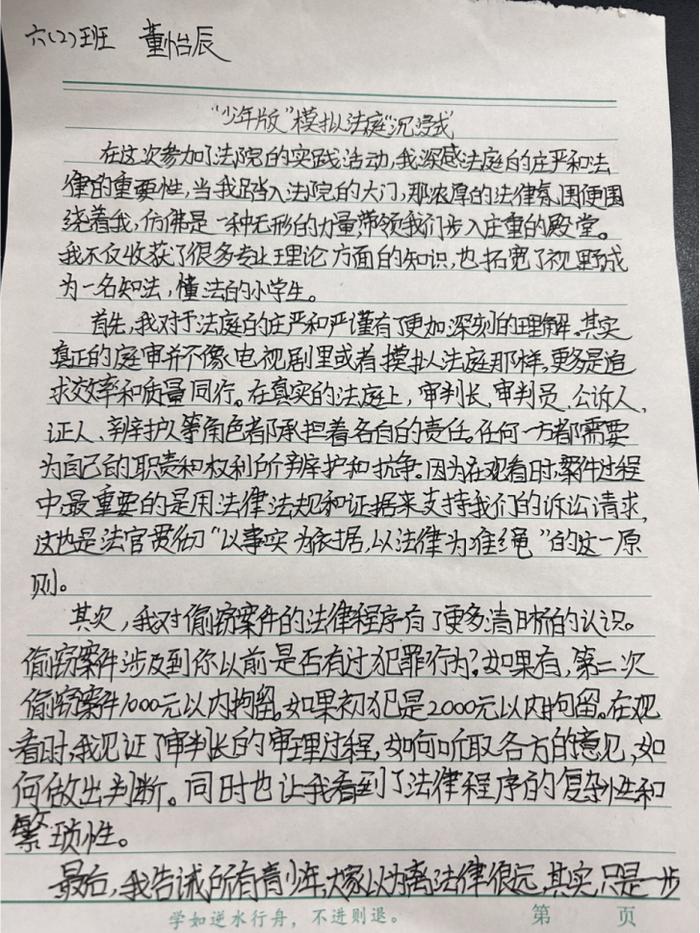 六(2)班 董怡辰
“少年版”模拟法庭“沉浸式”
在这次参加了法院的实践活动,我深感法庭的庄严和法
律的重要性,当我踏入法院的大门,那浓厚的法律氛围便围
绕着我,仿佛是一种无形的力量带领我们步入庄重的殿堂。
我不仅收获了很多专业理论方面的知识,也拓宽了视野成
为一名知法,懂法的小学生。
首先,我对于法庭的庄严和严谨有了更加深刻的理解。其实
真正的庭审并不像电视剧里或者模拟法庭那样,更多是追
求效率和质量同行。在真实的法庭上,审判长、审判员、公诉人、
证人、辩护人等角色都承担着各自的责任。任何一方都需要
为自己的职责和权利所辩护和抗争。因为在观看时,案件过程
中最重要的是用法律法规和证据来支持我们的诉讼请求,
这也是法官贯彻“以事实为依据,以法律为准绳”的这一原
则。
其次,我对偷窃案件的法律程序有了更多清晰的认识。
偷窃案件涉及到你以前是否有过犯罪行为?如果有,第二次
偷窃案件1000元以内拘留。如果初犯是2000元以内拘留。在观
看时,我见证了审判长的审理过程,如何听取各方的意见,如
何做出判断。同时也让我看到了法律程序的复杂性和
繁琐性。
最后,我告诫所有青少年,大家以为离法律很远,其实只是一步
学如逆水行舟,不进则退。 第 页